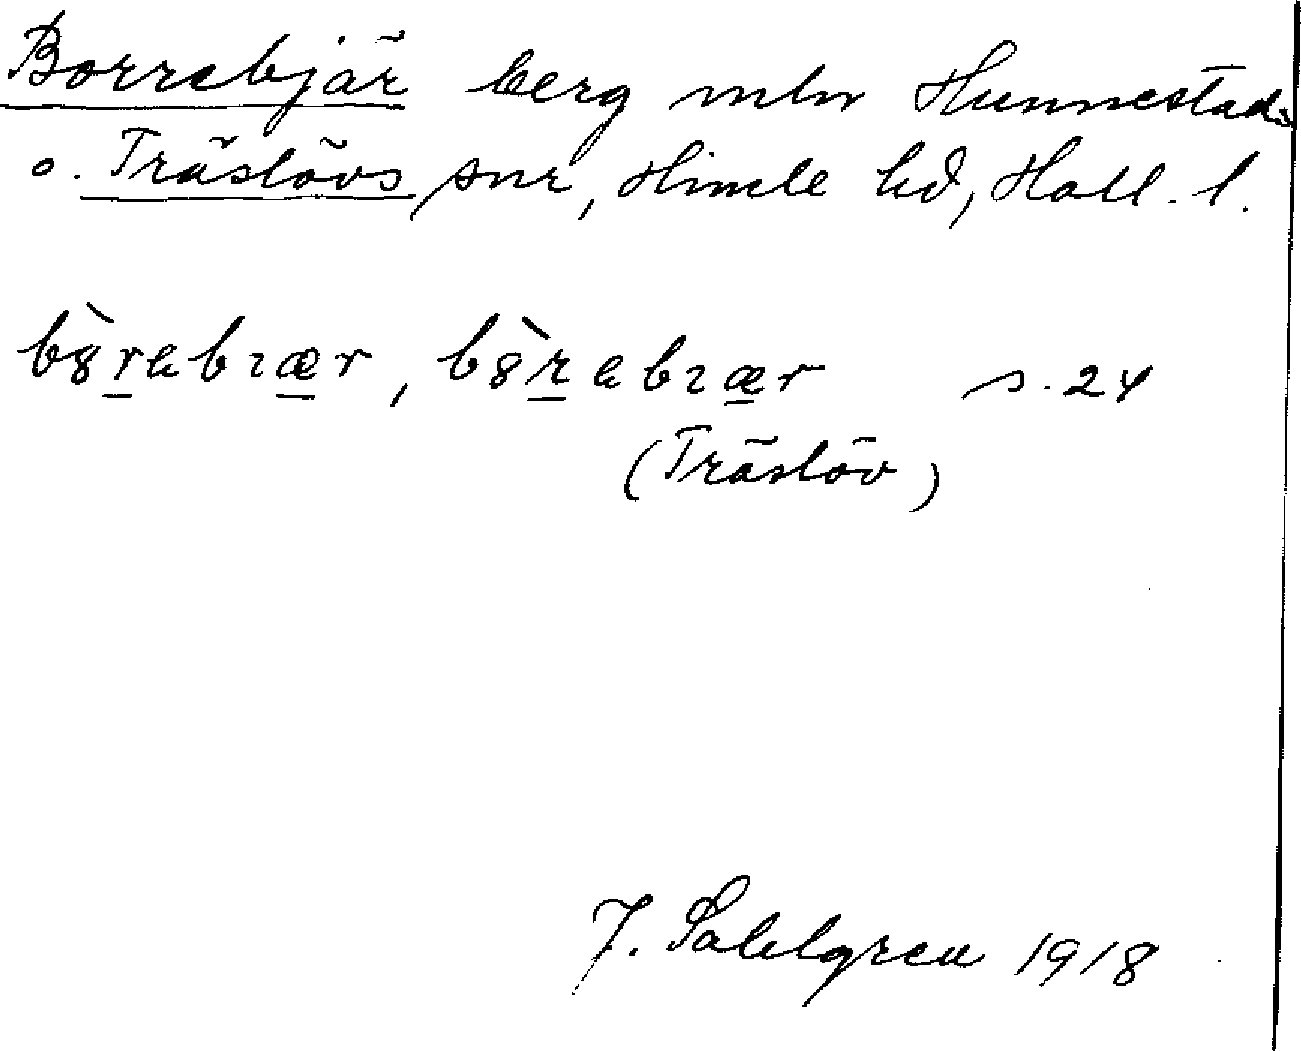 Borrebjär berg mln Hunnestads
o. Träslövs snr, Himle hd, Hall. l.
bò̈rebıær, bò̈rebıær s. 24
(Träslöv)
J. Sahlgren 1918